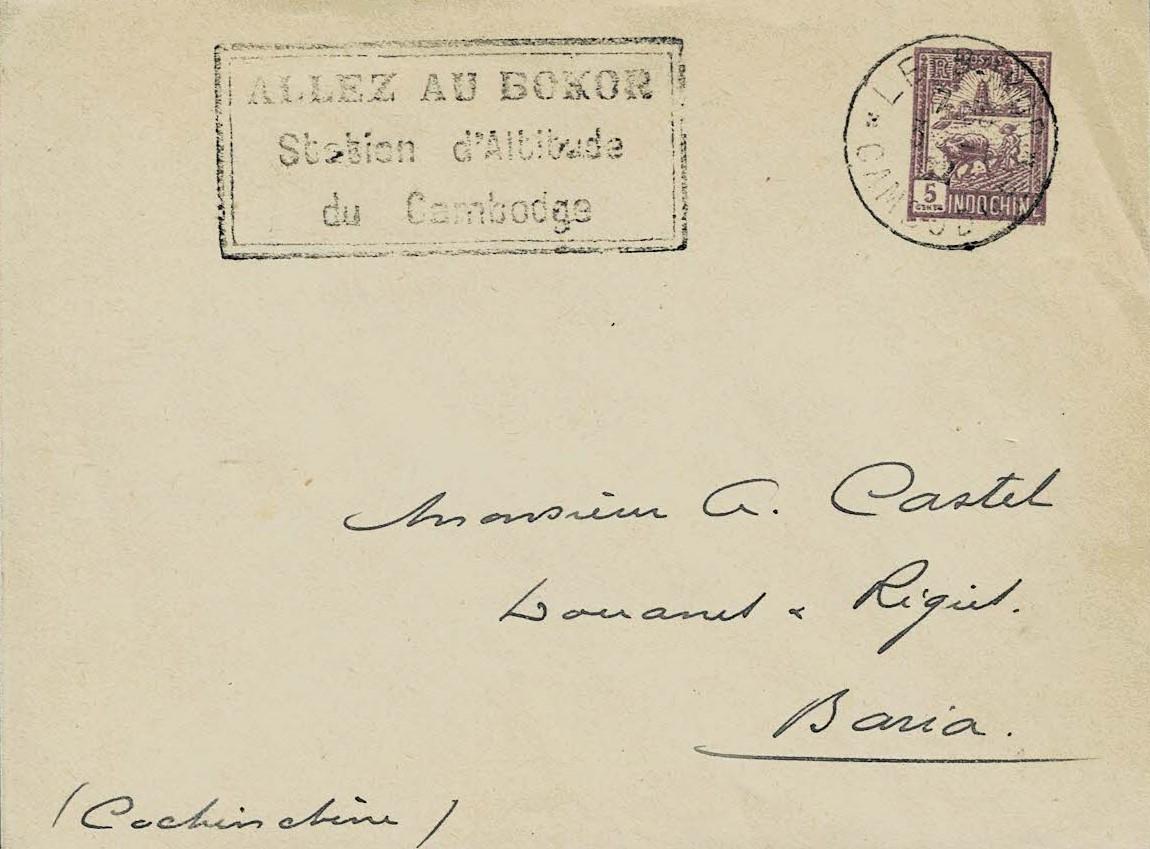 ALLEZ AU BOKOR
Station d'Altitude
du Cambodge
5
CENTS
INDOCHINE
Monsieur A. Castel
Douanes & Régies.
Baria.
(Cochinchine)